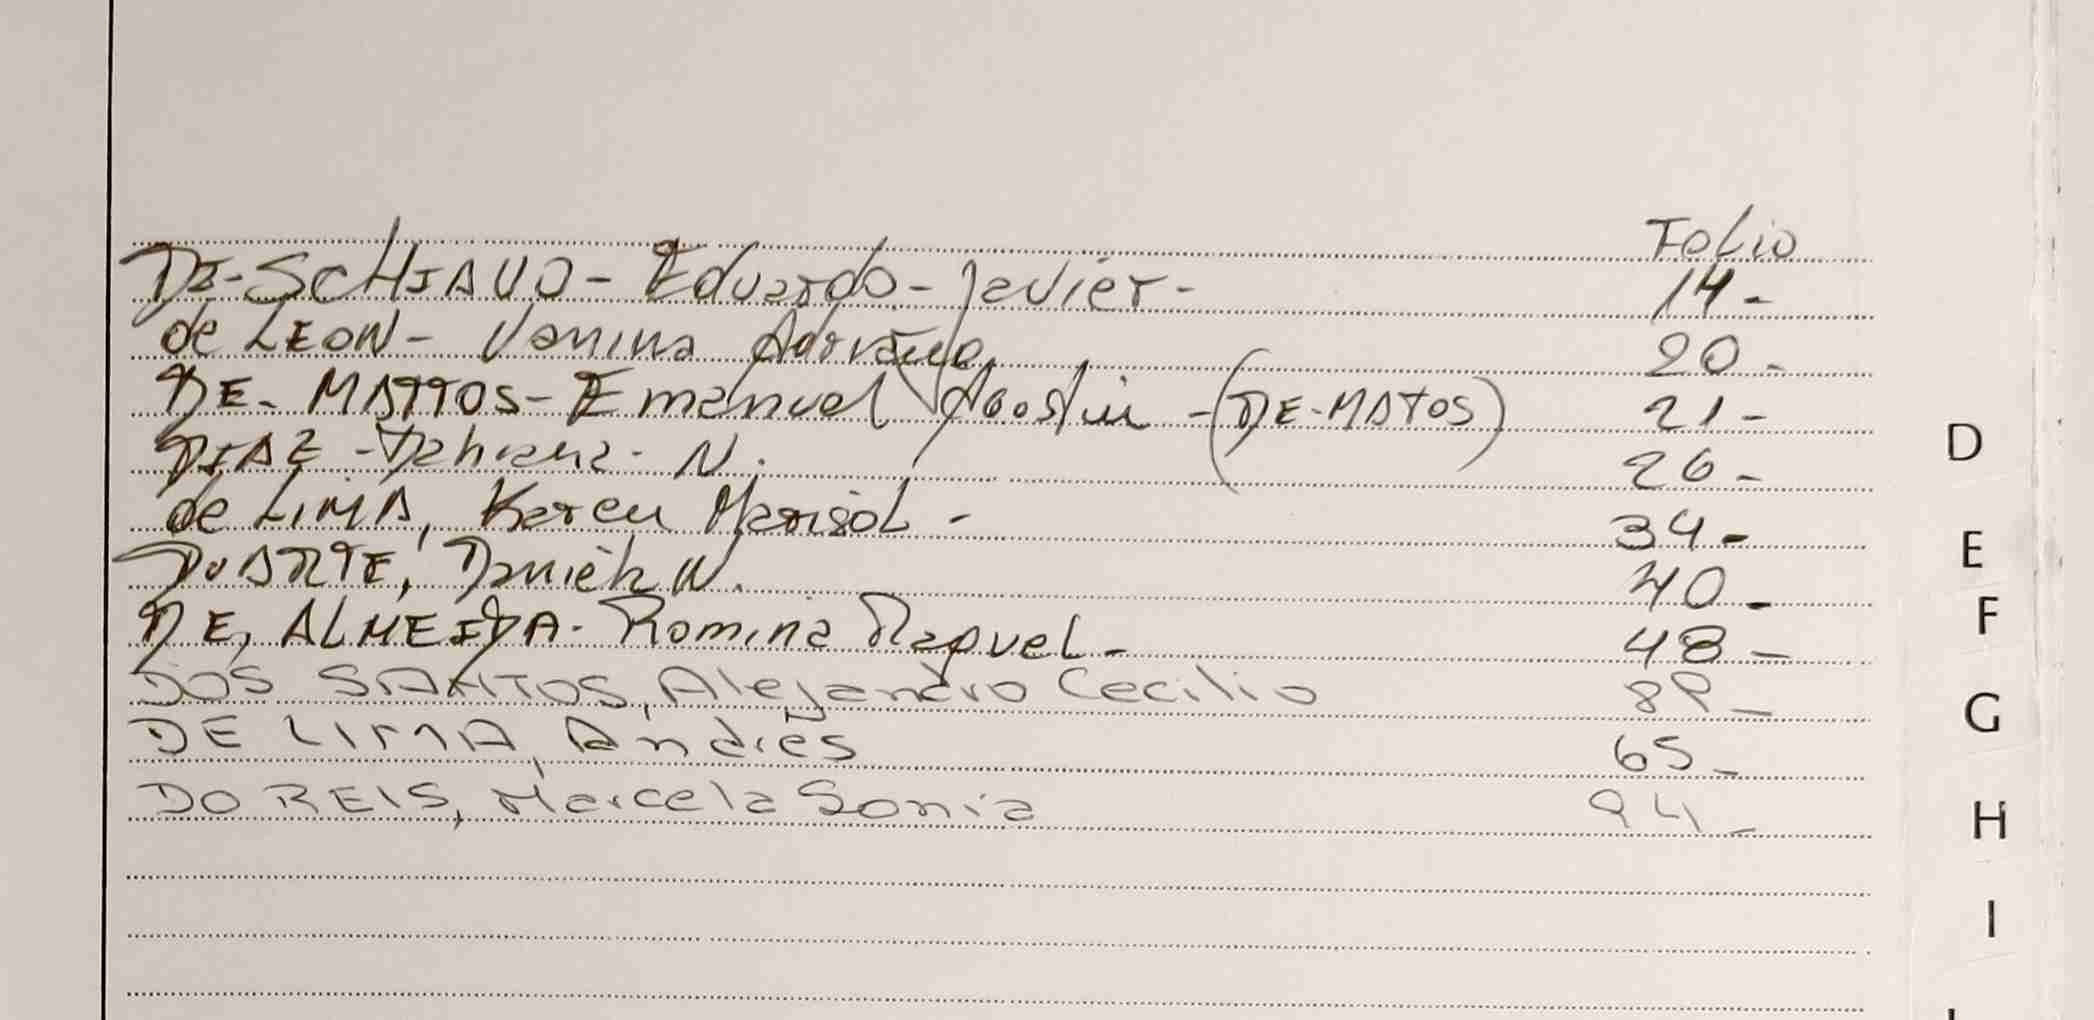 Folio
DI-SCHIAVO- Eduardo- Javier- 14-
de LEON- Vanina 20-
DE- MATTOS- Emanuel Agostin -(DE-MATOS) 21-
DIAZ - N. 26-
de LIMA, Karen Marisol - 34-
DUARTE, Daniela N. 40-
DE, ALMEIDA- Romina Raquel- 48-
DOS SANTOS, Alejandro Cecilio
DE LIMA, Andrés 65-
DO REIS, Marcela Sonia 94-
D
E
F
G
H
I